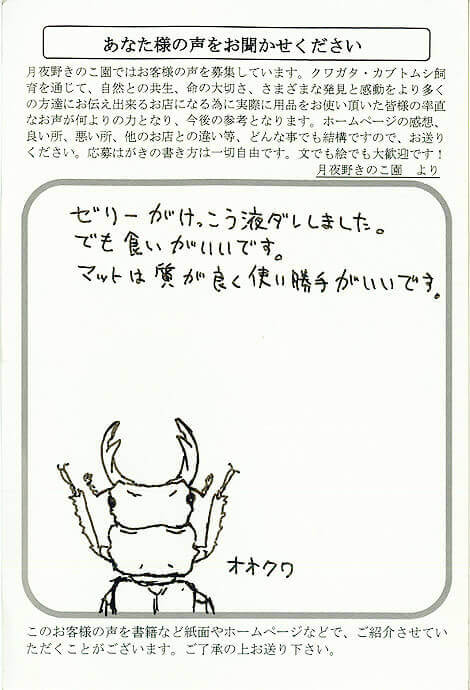 あなた様の声をお聞かせください
月夜野きのこ園ではお客様の声を募集しています。クワガタ・カブトムシ飼
育を通じて、自然との共生、命の大切さ、さまざまな発見と感動をより多く
の方達にお伝え出来るお店になる為に実際に用品をお使い頂いた皆様の率直
なお声が何よりの力となり、今後の参考となります。ホームページの感想、
良い所、悪い所、他のお店との違い等、どんな事でも結構ですので、お送り
ください。応募はがきの書き方は一切自由です。文でも絵でも大歓迎です！
月夜野きのこ園　より
ゼリーがけっこう液ダレしました。
でも食いがいいです。
マットは質が良く使い勝手がいいです。
オオクワ
このお客様の声を書籍など紙面やホームページなどで、ご紹介させてい
ただくことがございます。ご了承の上お送り下さい。